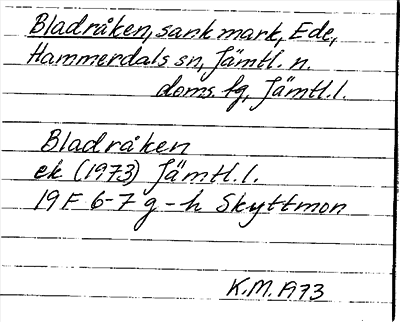 Bladråken, sank mark, Ede,
Hammerdals sn, Jämtl. n.
doms. fg, Jämtl.l.
Bladråken
ek (1973) Jämtl.l.
19F 6-7 g-h Skyttmon
K.M. 1973